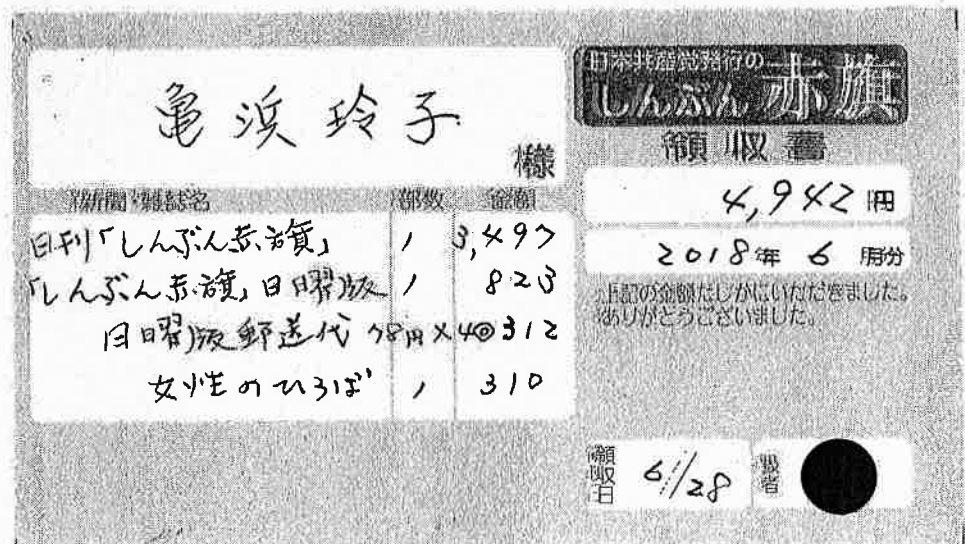 亀浜玲子
様
新聞・雑誌名 部数 金額
日刊「しんぶん赤旗」 1 3,497
「しんぶん赤旗」日曜版 1 823
日曜版郵送代 78円×4回 312
女性のひろば 1 310
日本共産党発行の
しんぶん赤旗
領収書
4,942円
2018年 6月分
上記の金額たしかにいただきました。
ありがとうございました。
領収日 6/28
扱者